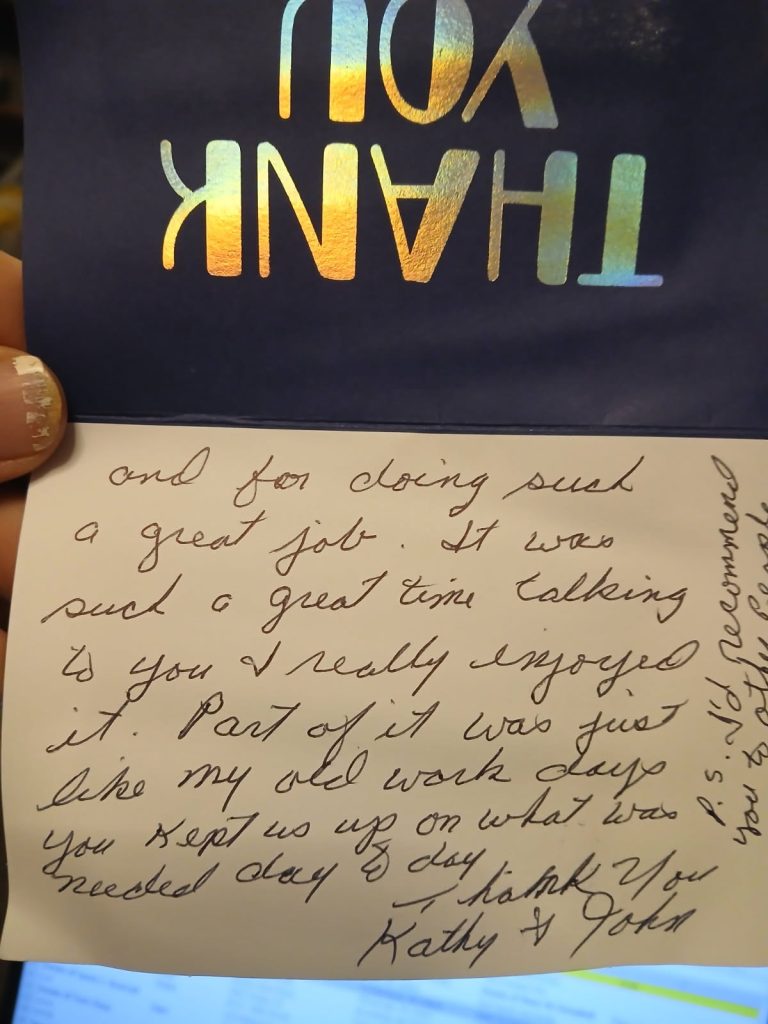 THANK
YOU
and for doing such
a great job. It was
such a great time talking
to you I really enjoyed
it. Part of it was just
like my old work days
you kept us up on what was
needed day to day
Thank You
Kathy & John
P.S. I'd recommend
you to other people